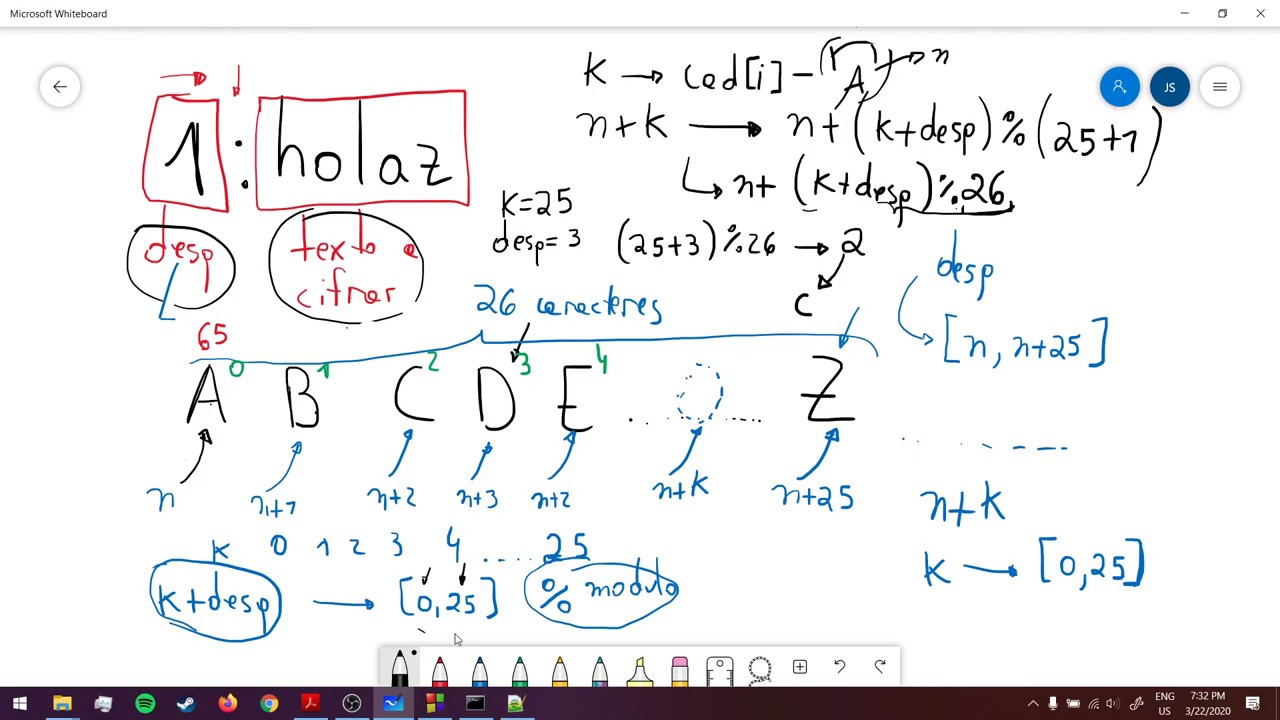 Microsoft Whiteboard
K → cad[i] - A → n
n+k → n+(k+desp)%(25+1)
↳ n+(k+desp)%26
JS
1:holaz
desp
texto a cifrar
K=25
desp=3 (25+3)%26 → 2
C
desp
[n, n+25]
26 caracteres
65
A 0 B 1 C 2 D 3 E 4 ........ Z
n n+1 n+2 n+3 n+2 n+k n+25
n+k
k 0 1 2 3 4 .... 25
k → [0,25]
k+desp → [0,25] % modulo
ENG 7:32 PM
US 3/22/2020